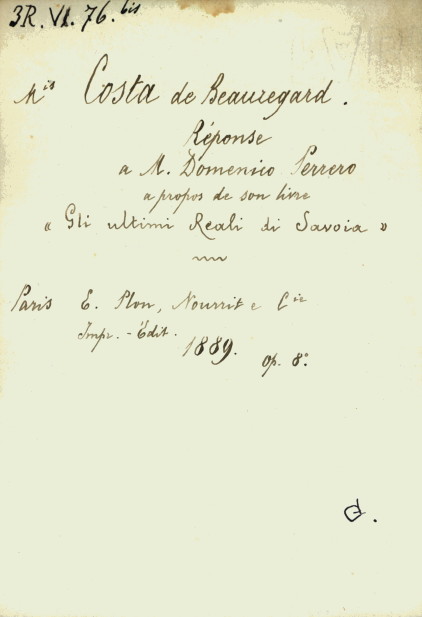 3R. VI. 76. bis
Mis Costa de Beauregard.
Réponse
a M. Domenico Perrero
a propos de son livre
« Gli ultimi Reali di Savoia »
Paris E. Plon, Nourrit e Cie
Impr. - Édit.
1889.
op. 8°.